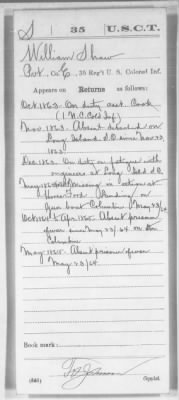 S 35 U.S.C.T.
William Shaw
Pvt., Co. E, 35 Reg't U. S. Colored Inf.
Appears on Returns as follows:
Oct. 1863. On duty as Cook
(1 N.C. Cold Inf)
Nov. 1863. Absent detached on
Long Island S.C. since Nov 22,
1863
Dec. 1863. On duty on fatigue with
engineers at Long Isld S.C.
May 1864 Missing in action at
Horse Ford Landing on
gun boat Columbine May 23/64
Oct 1864 to Apr. 1865. Absent prisoner
of war since May 23/64 on Str
Columbine
May 1865. Absent prisoner of war
May 23/64.
Book mark:
(546) Copyist.